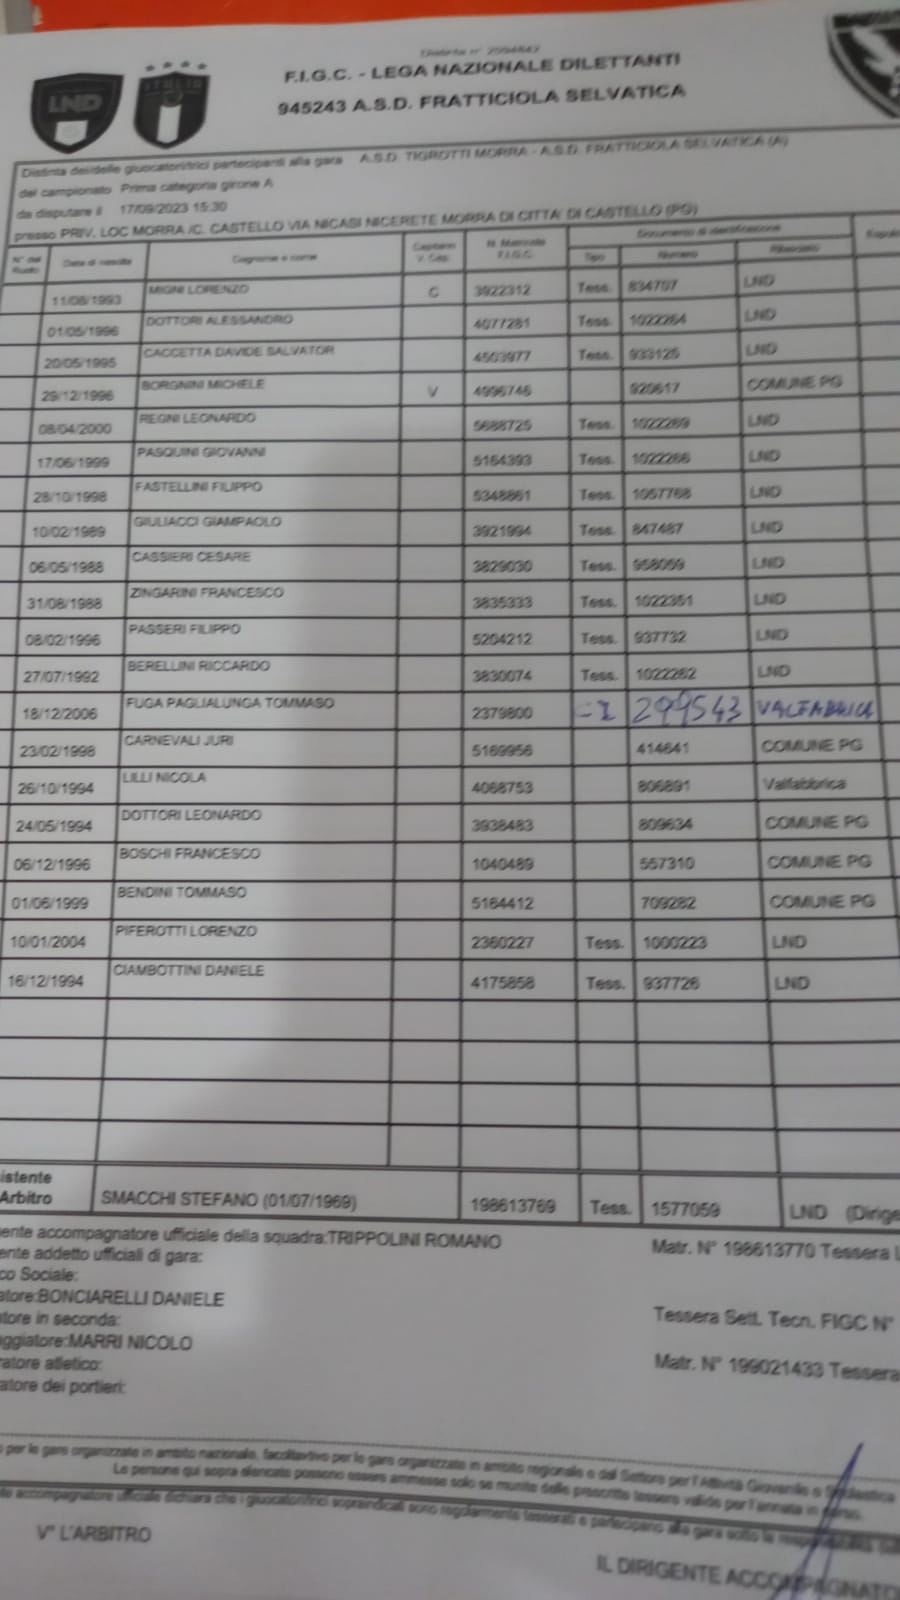 LND
ITALIA
F.I.G.C. - LEGA NAZIONALE DILETTANTI
945243 A.S.D. FRATTICIOLA SELVATICA
Distinta dei/delle giuocatori/trici partecipanti alla gara A.S.D. TIGROTTI MORRA - A.S.D. FRATTICIOLA SELVATICA (A)
del campionato Prima categoria girone A
da disputare il 17/09/2023 15:30
presso PRIV. LOC MORRA /C. CASTELLO VIA NICASI NICERETE MORRA DI CITTA' DI CASTELLO (PG)
Data di nascita Cognome e nome Capitano V. Cap. N. Matricola F.I.G.C. Documento di identificazione
Tipo Numero Rilasciato
11/08/1993 MIGNI LORENZO C 3922312 Tess. 834707 LND
01/05/1996 DOTTORI ALESSANDRO 4077281 Tess. 1022264 LND
20/05/1995 CACCETTA DAVIDE SALVATOR 4503977 Tess. 933125 LND
29/12/1996 BORGNINI MICHELE V 4996746 920617 COMUNE PG
08/04/2000 REGNI LEONARDO 5688725 Tess. 1022269 LND
17/06/1999 PASQUINI GIOVANNI 5164393 Tess. 1022266 LND
28/10/1998 FASTELLINI FILIPPO 5348861 Tess. 1057768 LND
10/02/1989 GIULIACCI GIAMPAOLO 3921994 Tess. 847487 LND
06/05/1988 CASSIERI CESARE 3829030 Tess. 958059 LND
31/08/1988 ZINGARINI FRANCESCO 3835333 Tess. 1022351 LND
08/02/1996 PASSERI FILIPPO 5204212 Tess. 937732 LND
27/07/1992 BERELLINI RICCARDO 3830074 Tess. 1022262 LND
18/12/2006 FUGA PAGLIALUNGA TOMMASO 2379800 CI 299543 VALFABBRICA
23/02/1998 CARNEVALI JURI 5169956 414641 COMUNE PG
26/10/1994 LILLI NICOLA 4068753 806891 Valfabbrica
24/05/1994 DOTTORI LEONARDO 3938483 809634 COMUNE PG
06/12/1996 BOSCHI FRANCESCO 1040489 557310 COMUNE PG
01/06/1999 BENDINI TOMMASO 5164412 709282 COMUNE PG
10/01/2004 PIFEROTTI LORENZO 2360227 Tess. 1000223 LND
16/12/1994 CIAMBOTTINI DANIELE 4175858 Tess. 937726 LND
istente
Arbitro SMACCHI STEFANO (01/07/1969) 198613769 Tess. 1577059 LND (Dirige
ente accompagnatore ufficiale della squadra:TRIPPOLINI ROMANO Matr. N° 198613770 Tessera L
ente addetto ufficiali di gara:
co Sociale:
atore:BONCIARELLI DANIELE Tessera Sett. Tecn. FIGC N°
atore in seconda:
aggiatore:MARRI NICOLO Matr. N° 199021433 Tessera
ratore atletico:
atore dei portieri:
o per le gare organizzate in ambito nazionale, facoltativo per le gare organizzate in ambito regionale e dal Settore per l'Attività Giovanile e Scolastica
Le persone qui sopra elencate possono essere ammesse solo se munite delle prescritte tessere valide per l'annata in corso.
accompagnatore ufficiale dichiara che i giuocatori/trici sopraindicati sono regolarmente tesserati e partecipano alla gara sotto la responsabilità
V° L'ARBITRO
IL DIRIGENTE ACCOMPAGNATO